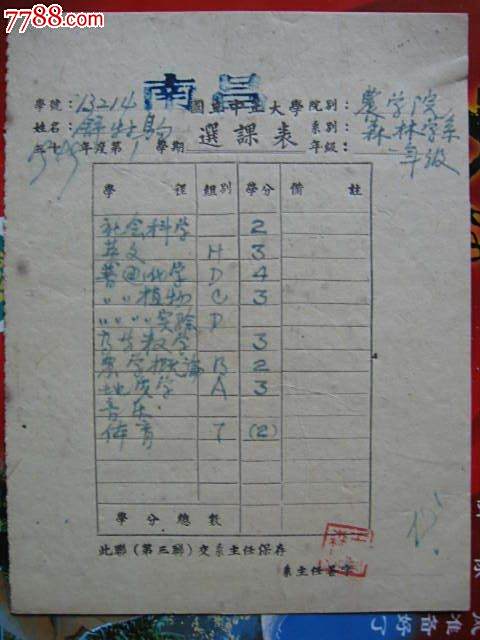 7788.com
南昌
學號：13214 國立中正大學院別：農学院
姓名： 選課表 系別：森林学系
年度第1學期 年級：一年級
學程 組別 學分 備註
社会科学 2
英文 H 3
普通化学 D 4
〃〃植物 C 3
〃〃〃〃实験 D
高等数学 3
農学概論 B 2
地质学 A 3
音乐
体育 7 (2)
學分總數
此聯（第三聯）交系主任保存
系主任簽字
准备好了